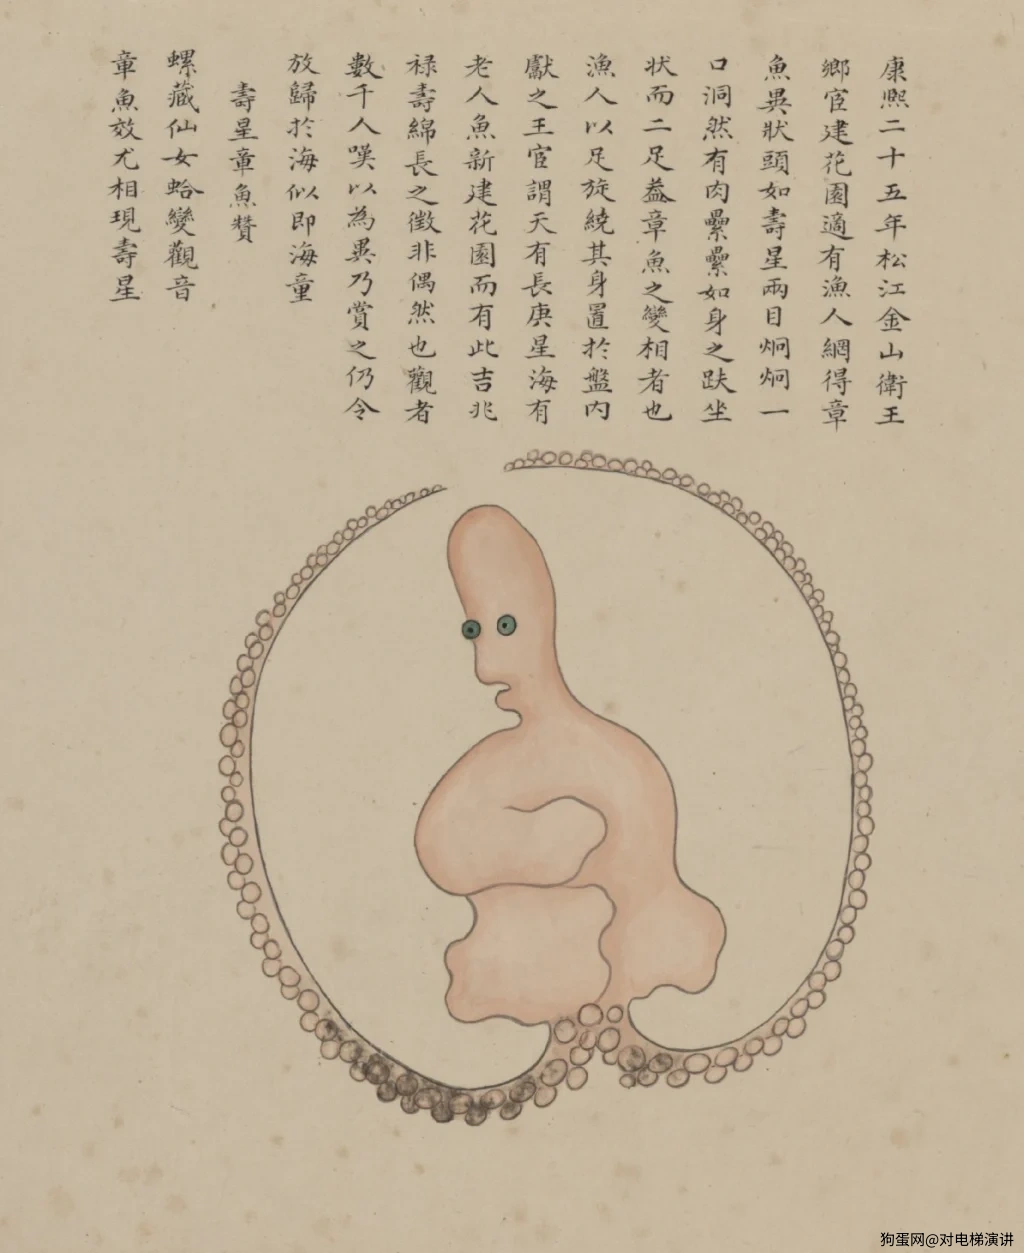 康熙二十五年松江金山衛王
鄉宦建花園適有漁人網得章
魚異狀頭如壽星兩目炯炯一
口洞然有肉纍纍如身之趺坐
狀而二足葢章魚之變相者也
漁人以足旋繞其身置於盤內
獻之王宦謂天有長庚星海有
老人魚新建花園而有此吉兆
祿壽綿長之徵非偶然也觀者
數千人嘆以為異乃賞之仍令
放歸於海似即海童
壽星章魚贊
螺藏仙女蛤變觀音
章魚效尤相現壽星
狗蛋网@对电梯演讲